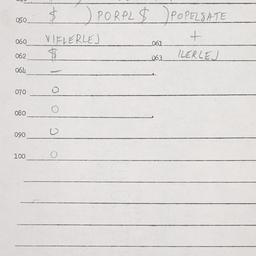 050 $ ) PORPL $ ) POPELSATE
060 VIFLERLEJ 061 +
062 $ 063 ILERLEJ
064 –
070 O
080 O
090 U
100 O